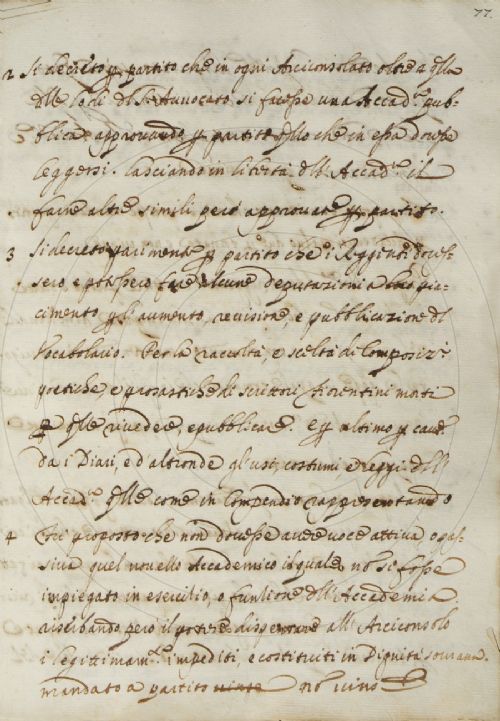 77.
2 Si decretò p partito che in ogni Arciconsolato oltre a qlla
dlle lodi di S. Avvocato si facesse una Accad.ª pub-
blica approvando p partito qllo che in essa dovesse
leggersi. lasciando in libertà dll' Accad.ª il
farne altre simili però approvate p partito.
3 Si decretò parimente p partito che i Reggenti doves-
sero, e potessero fare alcune deputazioni a loro pia-
cimento p l'aumento, revisione, e pubblicazione dl
Vocabolario. Per la raccolta, e scelta di Composiz.ⁱ
poetiche, e prosastiche di scrittori fiorentini morti
p qlle rivedere, e pubblicare. e p ultimo p cavar
da i Diari, ed altronde gl'usi, costumi e leggi dll'
Accad.ª qlle come in Compendio rappresentando
4 Fu proposto che non dovesse avere voce attiva o pas-
siva quel novello Accademico il quale no si fosse
impiegato in esercizio, o funzione dll' Accademia
riserbando però il potere dispensare all' Arciconsolo
i legittimam.te impediti, e costituiti in Dignità
mandato a partito vinse no vinse